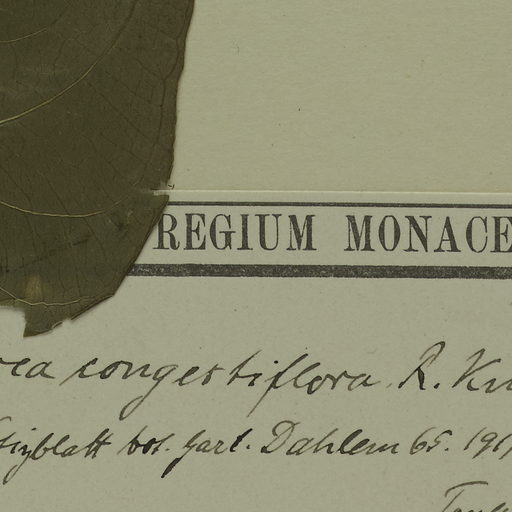 REGIUM MONACE
rea congestiflora R. Kn
tizblatt bot. Gart. Dahlem 65. 191